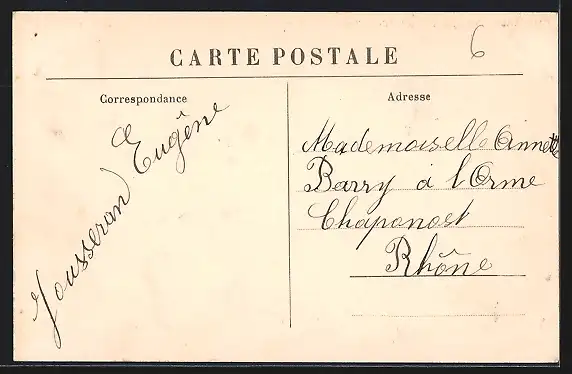 CARTE POSTALE
6
Correspondance
Eugène
Jousseran
Adresse
Mademoiselle Annette
Barry à l'Orme
Chaponost
Rhône